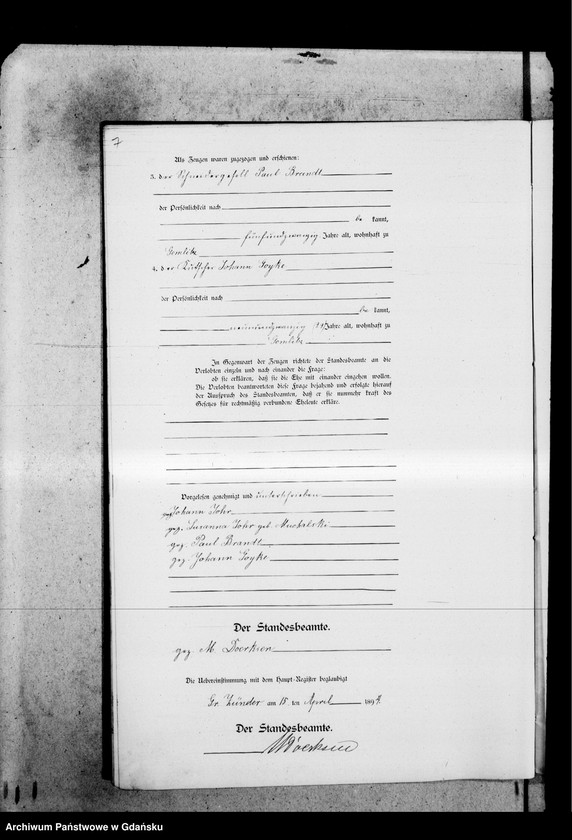 7
Als Zeugen waren zugezogen und erschienen:
3. der Schneidergesell Paul Brandt
der Persönlichkeit nach
be kannt,
fünfundzwanzig Jahre alt, wohnhaft zu
Gemlitz
4. der Kutscher Johann Goyke
der Persönlichkeit nach
be kannt,
neunundzwanzig (29) Jahre alt, wohnhaft zu
Gemlitz
In Gegenwart der Zeugen richtete der Standesbeamte an die
Verlobten einzeln und nach einander die Frage:
ob sie erklären, daß sie die Ehe mit einander eingehen wollen.
Die Verlobten beantworteten diese Frage bejahend und erfolgte hierauf
der Ausspruch des Standesbeamten, daß er sie nunmehr kraft des
Gesetzes für rechtmäßig verbundene Eheleute erkläre.
Vorgelesen genehmigt und unterschrieben
gez. Johann
gez. Susanna geb.
gez. Paul Brandt
gez. Johann Goyke
Der Standesbeamte.
gez. M. Doerksen
Die Uebereinstimmung mit dem Haupt-Register beglaubigt
Gr. Zünder am 15 ten April 189
Der Standesbeamte.
MDoerksen
Archiwum Państwowe w Gdańsku